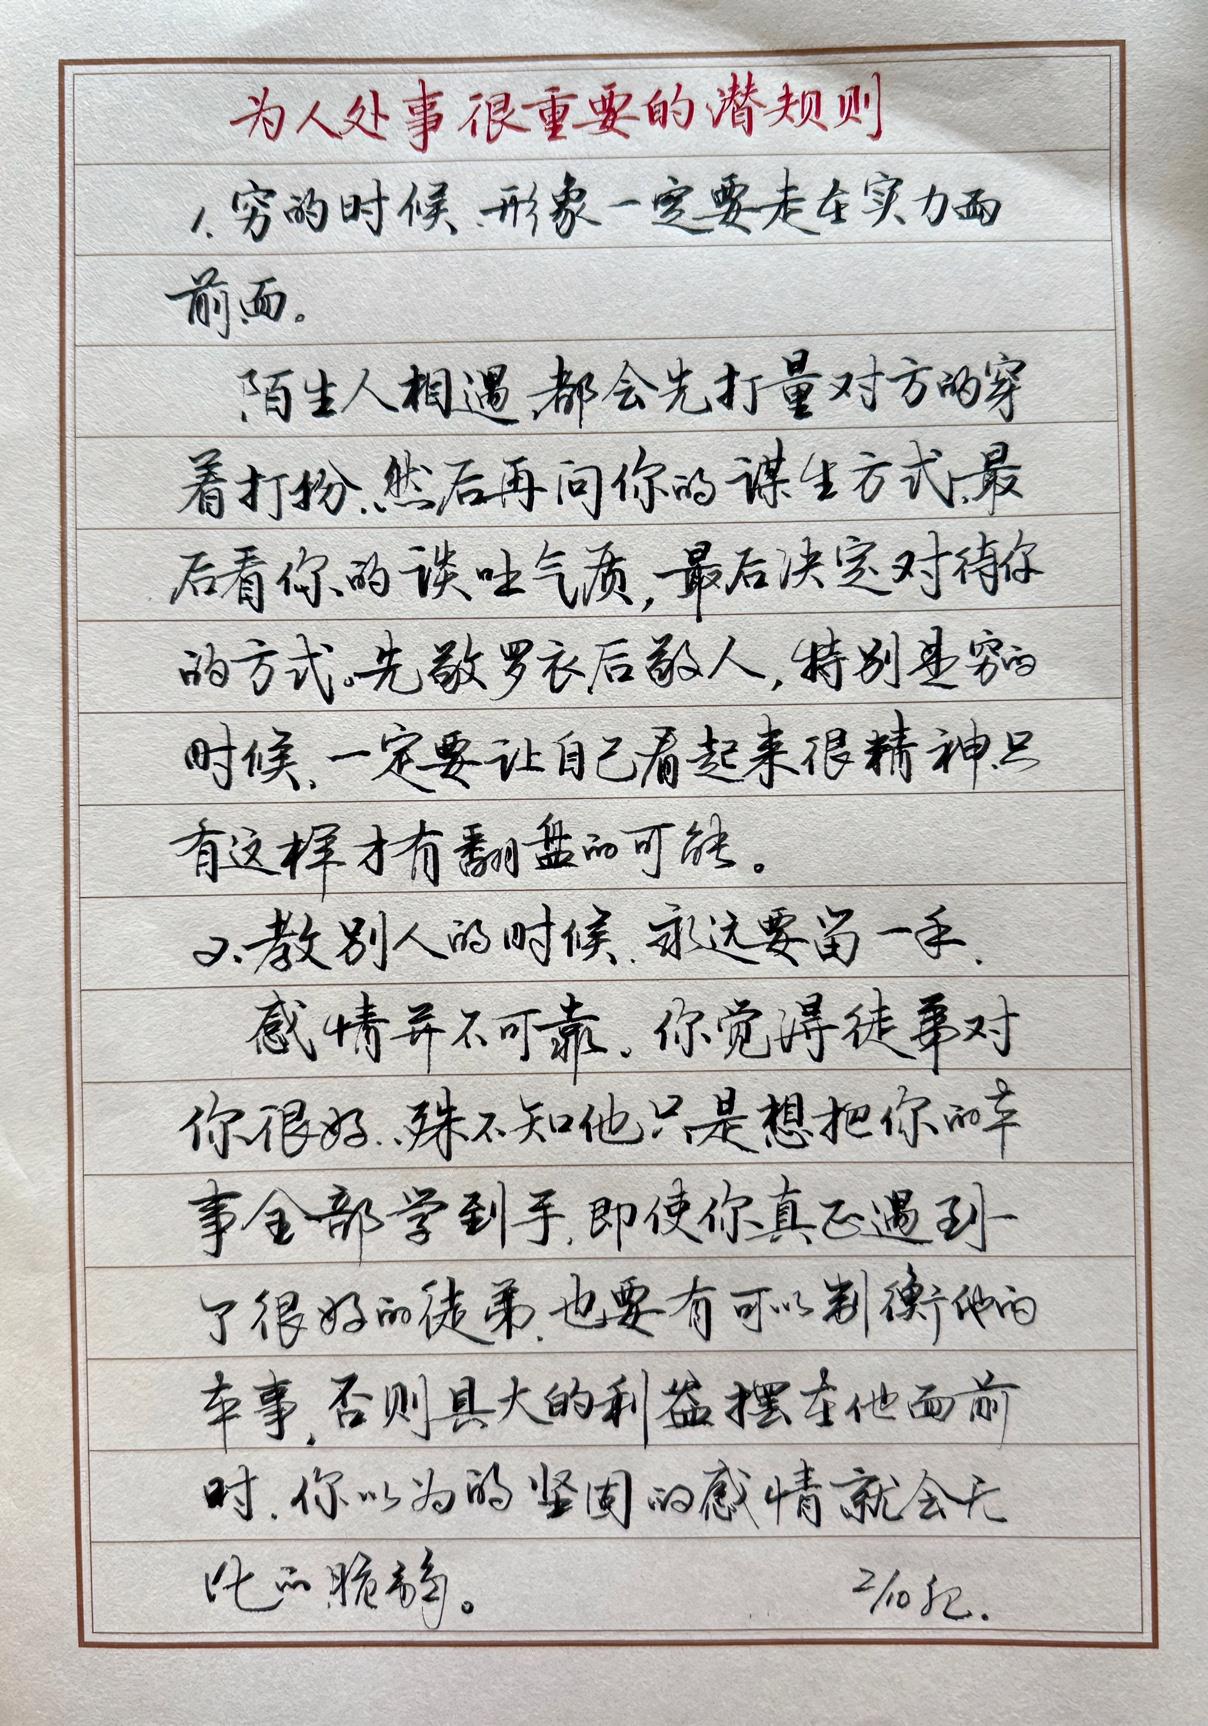 为人处事很重要的潜规则
1、穷的时候、形象一定要走在实力面
前面。
陌生人相遇、都会先打量对方的穿
着打扮、然后再问你的谋生方式、最
后看你的谈吐气质，最后决定对待你
的方式。先敬罗衣后敬人，特别是穷的
时候、一定要让自己看起来很精神、只
有这样才有翻盘的可能。
2、教别人的时候、永远要留一手、
感情并不可靠。你觉得徒弟对
你很好、殊不知他只是想把你的本
事全部学到手、即使你真正遇到一
了很好的徒弟、也要有可以制衡他的
本事、否则具大的利益摆在他面前
时、你以为的坚固的感情就会无
比的脆弱。
2/10